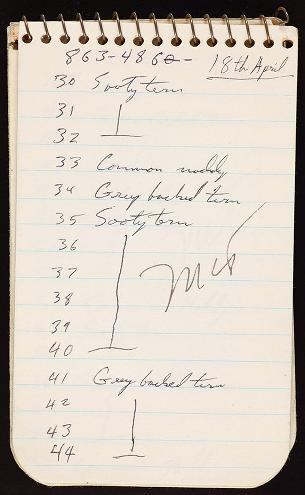 863-4860-
18th April
30 Sooty tern
31
32
33 Common noddy
34 Grey backed tern
35 Sooty tern
36
37
38
39
40
41 Grey backed tern
42
43
44